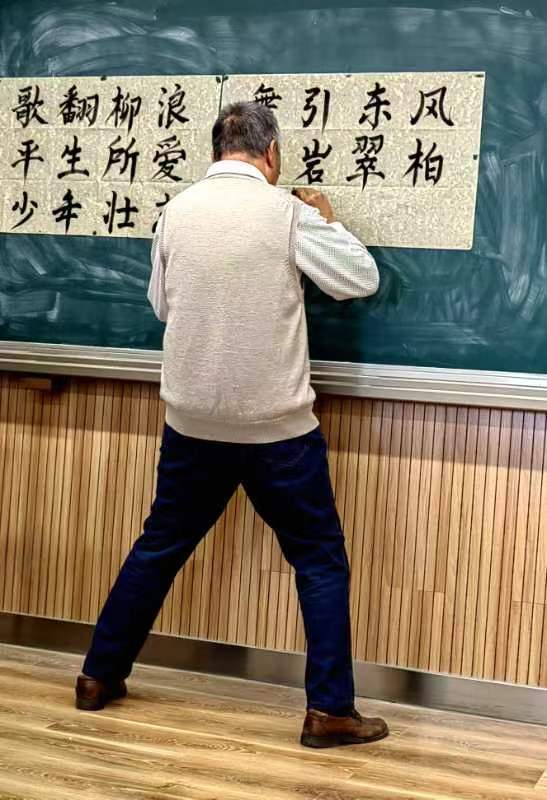 歌翻柳浪 引东风
平生所愛 岩翠柏
少年壮